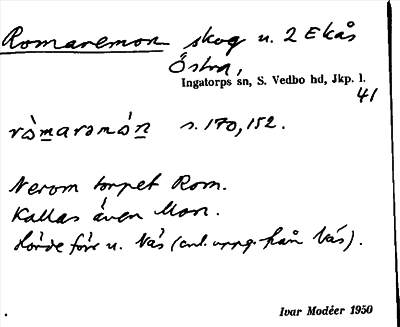 Romaremon skog u. 2 Ekås
Östra,
Ingatorps sn, S. Vedbo hd, Jkp. l.
41
ròmarəmón s. 170, 152.
Nerom torpet Rom.
Kallas även Mon.
Hörde förr u. Nås (enl. uppg. från Nås).
Ivar Modéer 1950